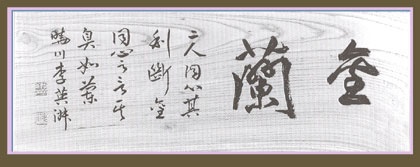 金蘭
二人同心其
利斷金
同心之言其
臭如蘭
川李